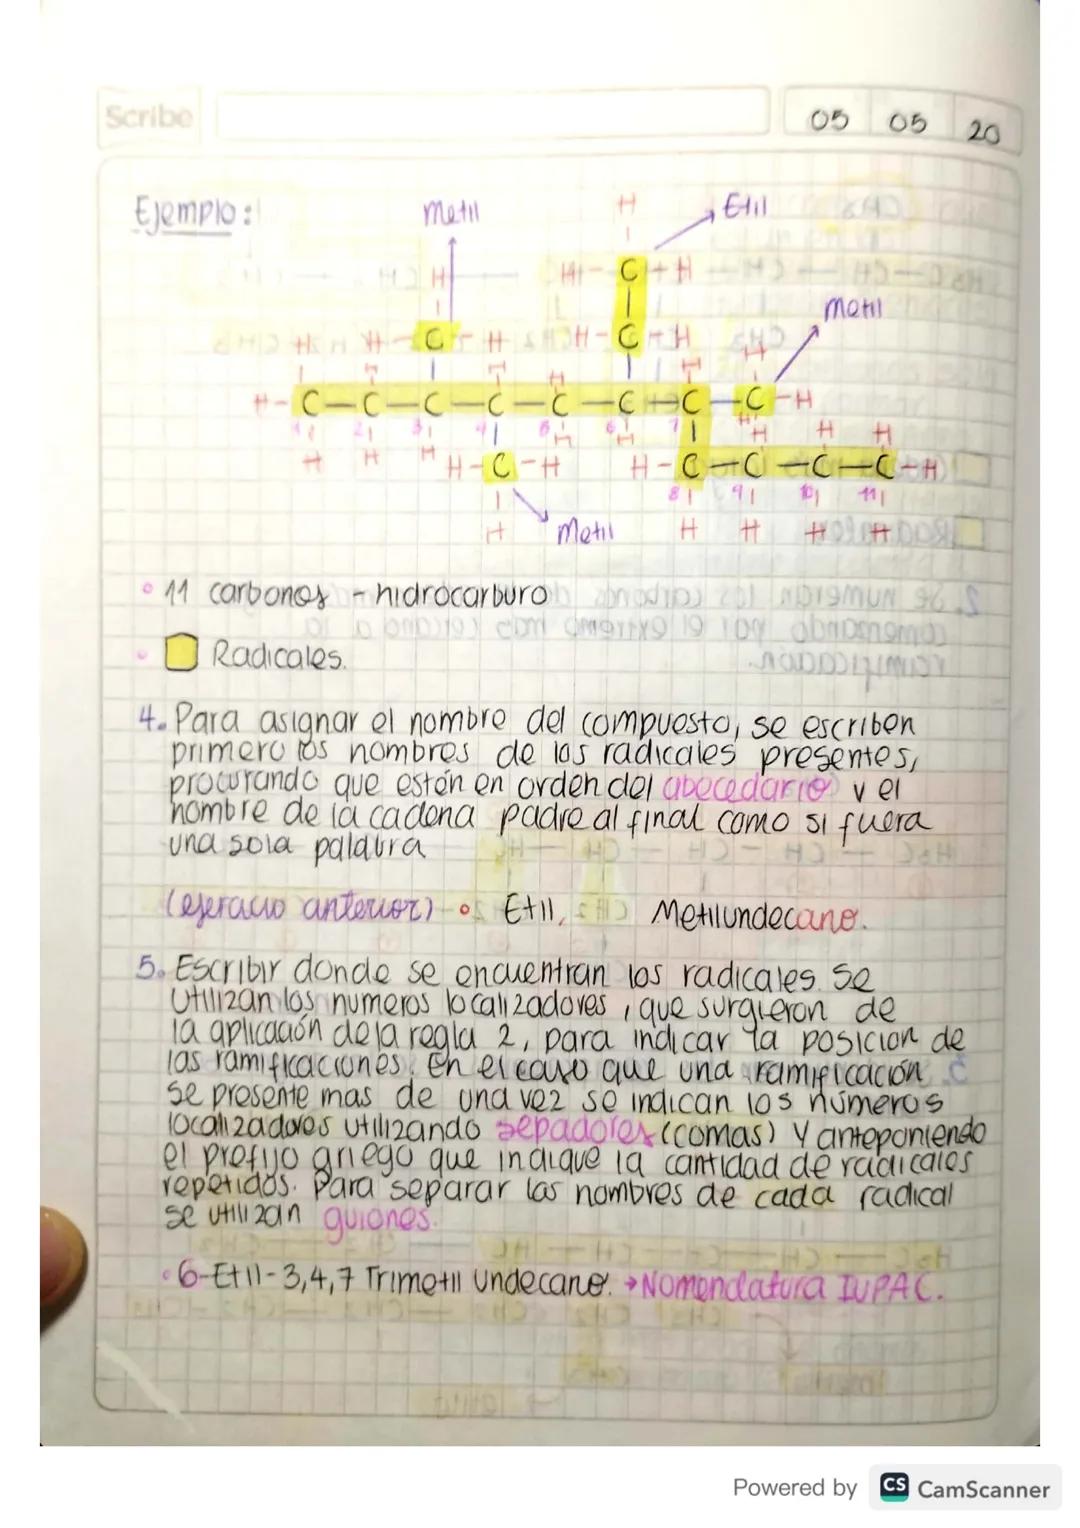 Scribe
05 05 20
Ejemplo:
Metil
H
Etil
H H-C-H
Metil
H H-C-H H-C-H
H H H H H H
H-C-C-C-C-C-C-C-C-H
1 2 3 4 5 6 7
H H H H H H H H H
H-C-H H-C-C-C-C-H
8 9 10 11
H Metil H H H H
• 11 carbonos - hidrocarburo
• Radicales.
4. Para asignar el nombre del compuesto, se escriben
primero los nombres de los radicales presentes,
procurando que estén en orden del abecedario y el
nombre de la cadena padre al final como si fuera
una sola palabra
(ejercicio anterior) • Etil, Metilundecano.
5. Escribir donde se encuentran los radicales. Se
utilizan los numeros localizadores, que surgieron de
la aplicación de la regla 2, para indicar la posicion de
las ramificaciones. En el caso que una ramificación
se presente mas de una vez se indican los números
localizadores utilizando sepadores (comas) y anteponiendo
el prefijo griego que indique la cantidad de radicales
repetidos. Para separar los nombres de cada radical
se utilizan guiones.
• 6-Etil-3,4,7 Trimetil Undecano. → Nomenclatura IUPAC.
Powered by CS CamScanner